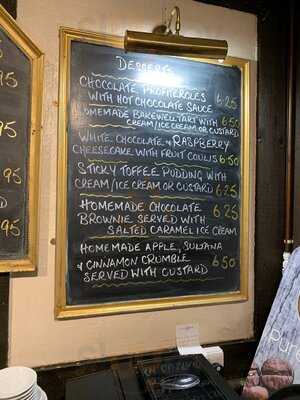 DESSERTS
CHOCOLATE PROFITEROLES
WITH HOT CHOCOLATE SAUCE 6.25
OMEMADE BAKEWELL TART WITH 6.50
CREAM/ICE CREAM OR CUSTARD
WHITE CHOCOLATE & RASPBERRY
CHEESECAKE WITH FRUIT COULIS 6.50
STICKY TOFFEE PUDDING WITH
CREAM/ICE CREAM OR CUSTARD 6.25
HOMEMADE CHOCOLATE 6.25
BROWNIE SERVED WITH
SALTED CARAMEL ICE CREAM
HOMEMADE APPLE, SULTANA
& CINNAMON CRUMBLE 6.50
SERVED WITH CUSTARD
95
.95
95
95
pur